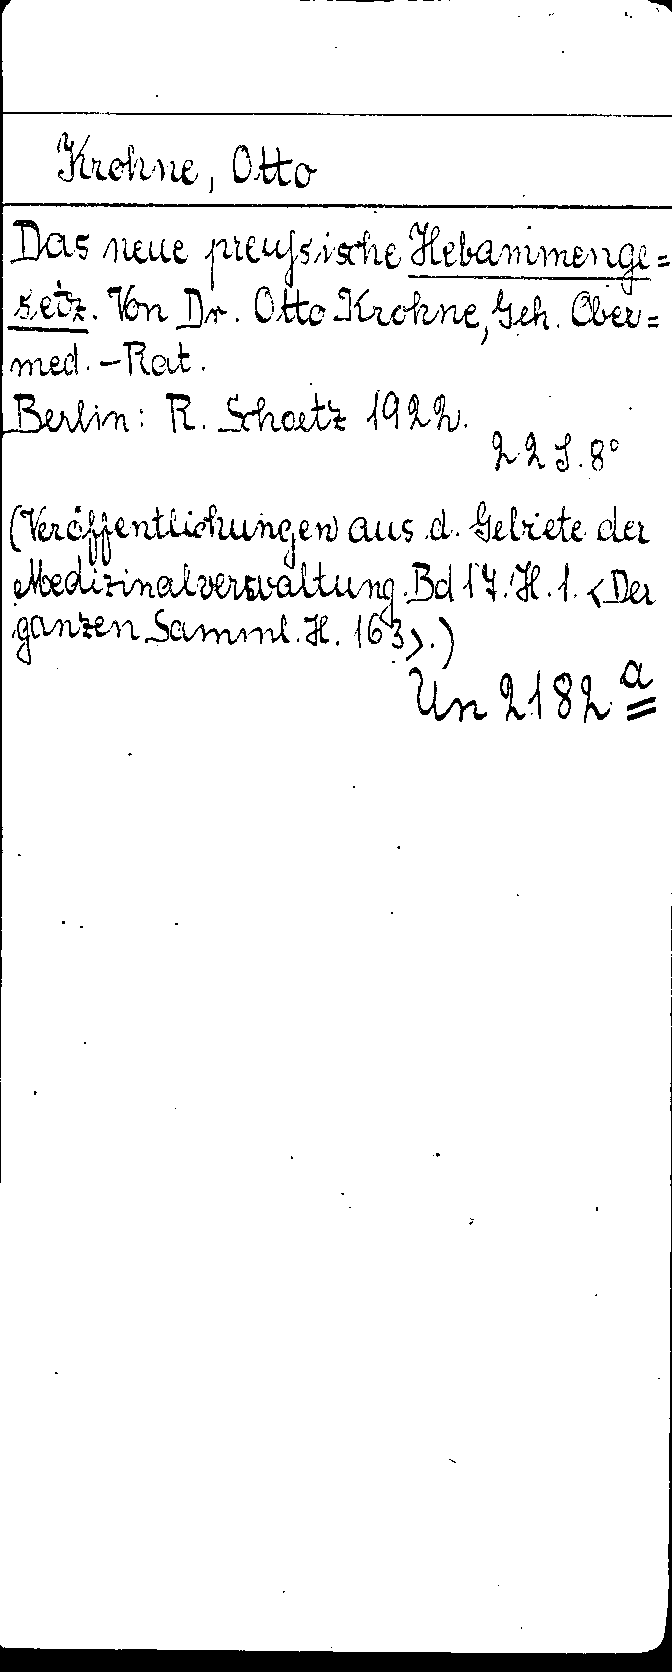 Krohne, Otto
Das neue preußische Hebammenge=
setz. Von Dr. Otto Krohne, Geh. Ober=
med.-Rat.
Berlin: R. Schoetz 1922.
22 S. 8°
(Veröffentlichungen aus d. Gebiete der
Medizinalverwaltung. Bd 17. H. 1. <Der
ganzen Samml. H. 163>.)
Un 2182 a